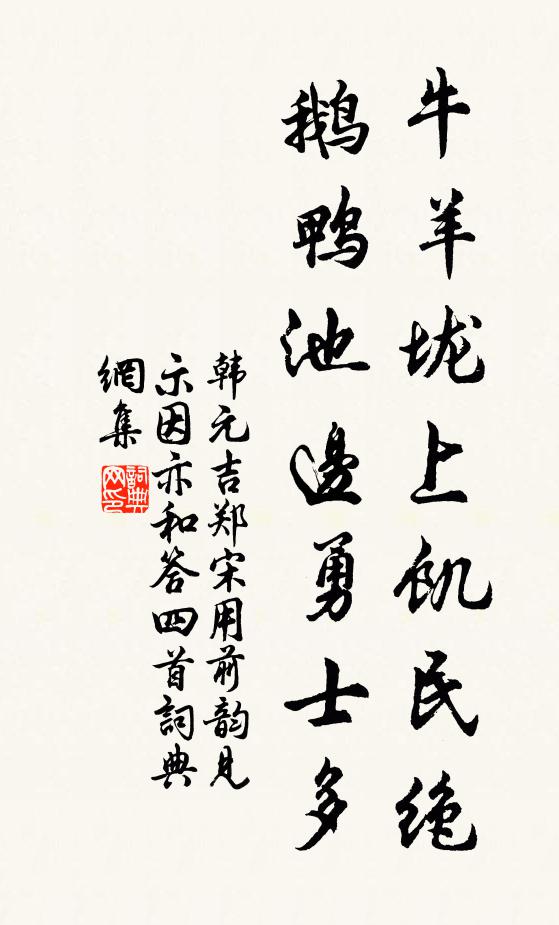 牛羊垅上飢民绝
鹅鸭池邊勇士多
韩元吉郑宋用前韵見
示因亦和答四首詞典
網集
詞典